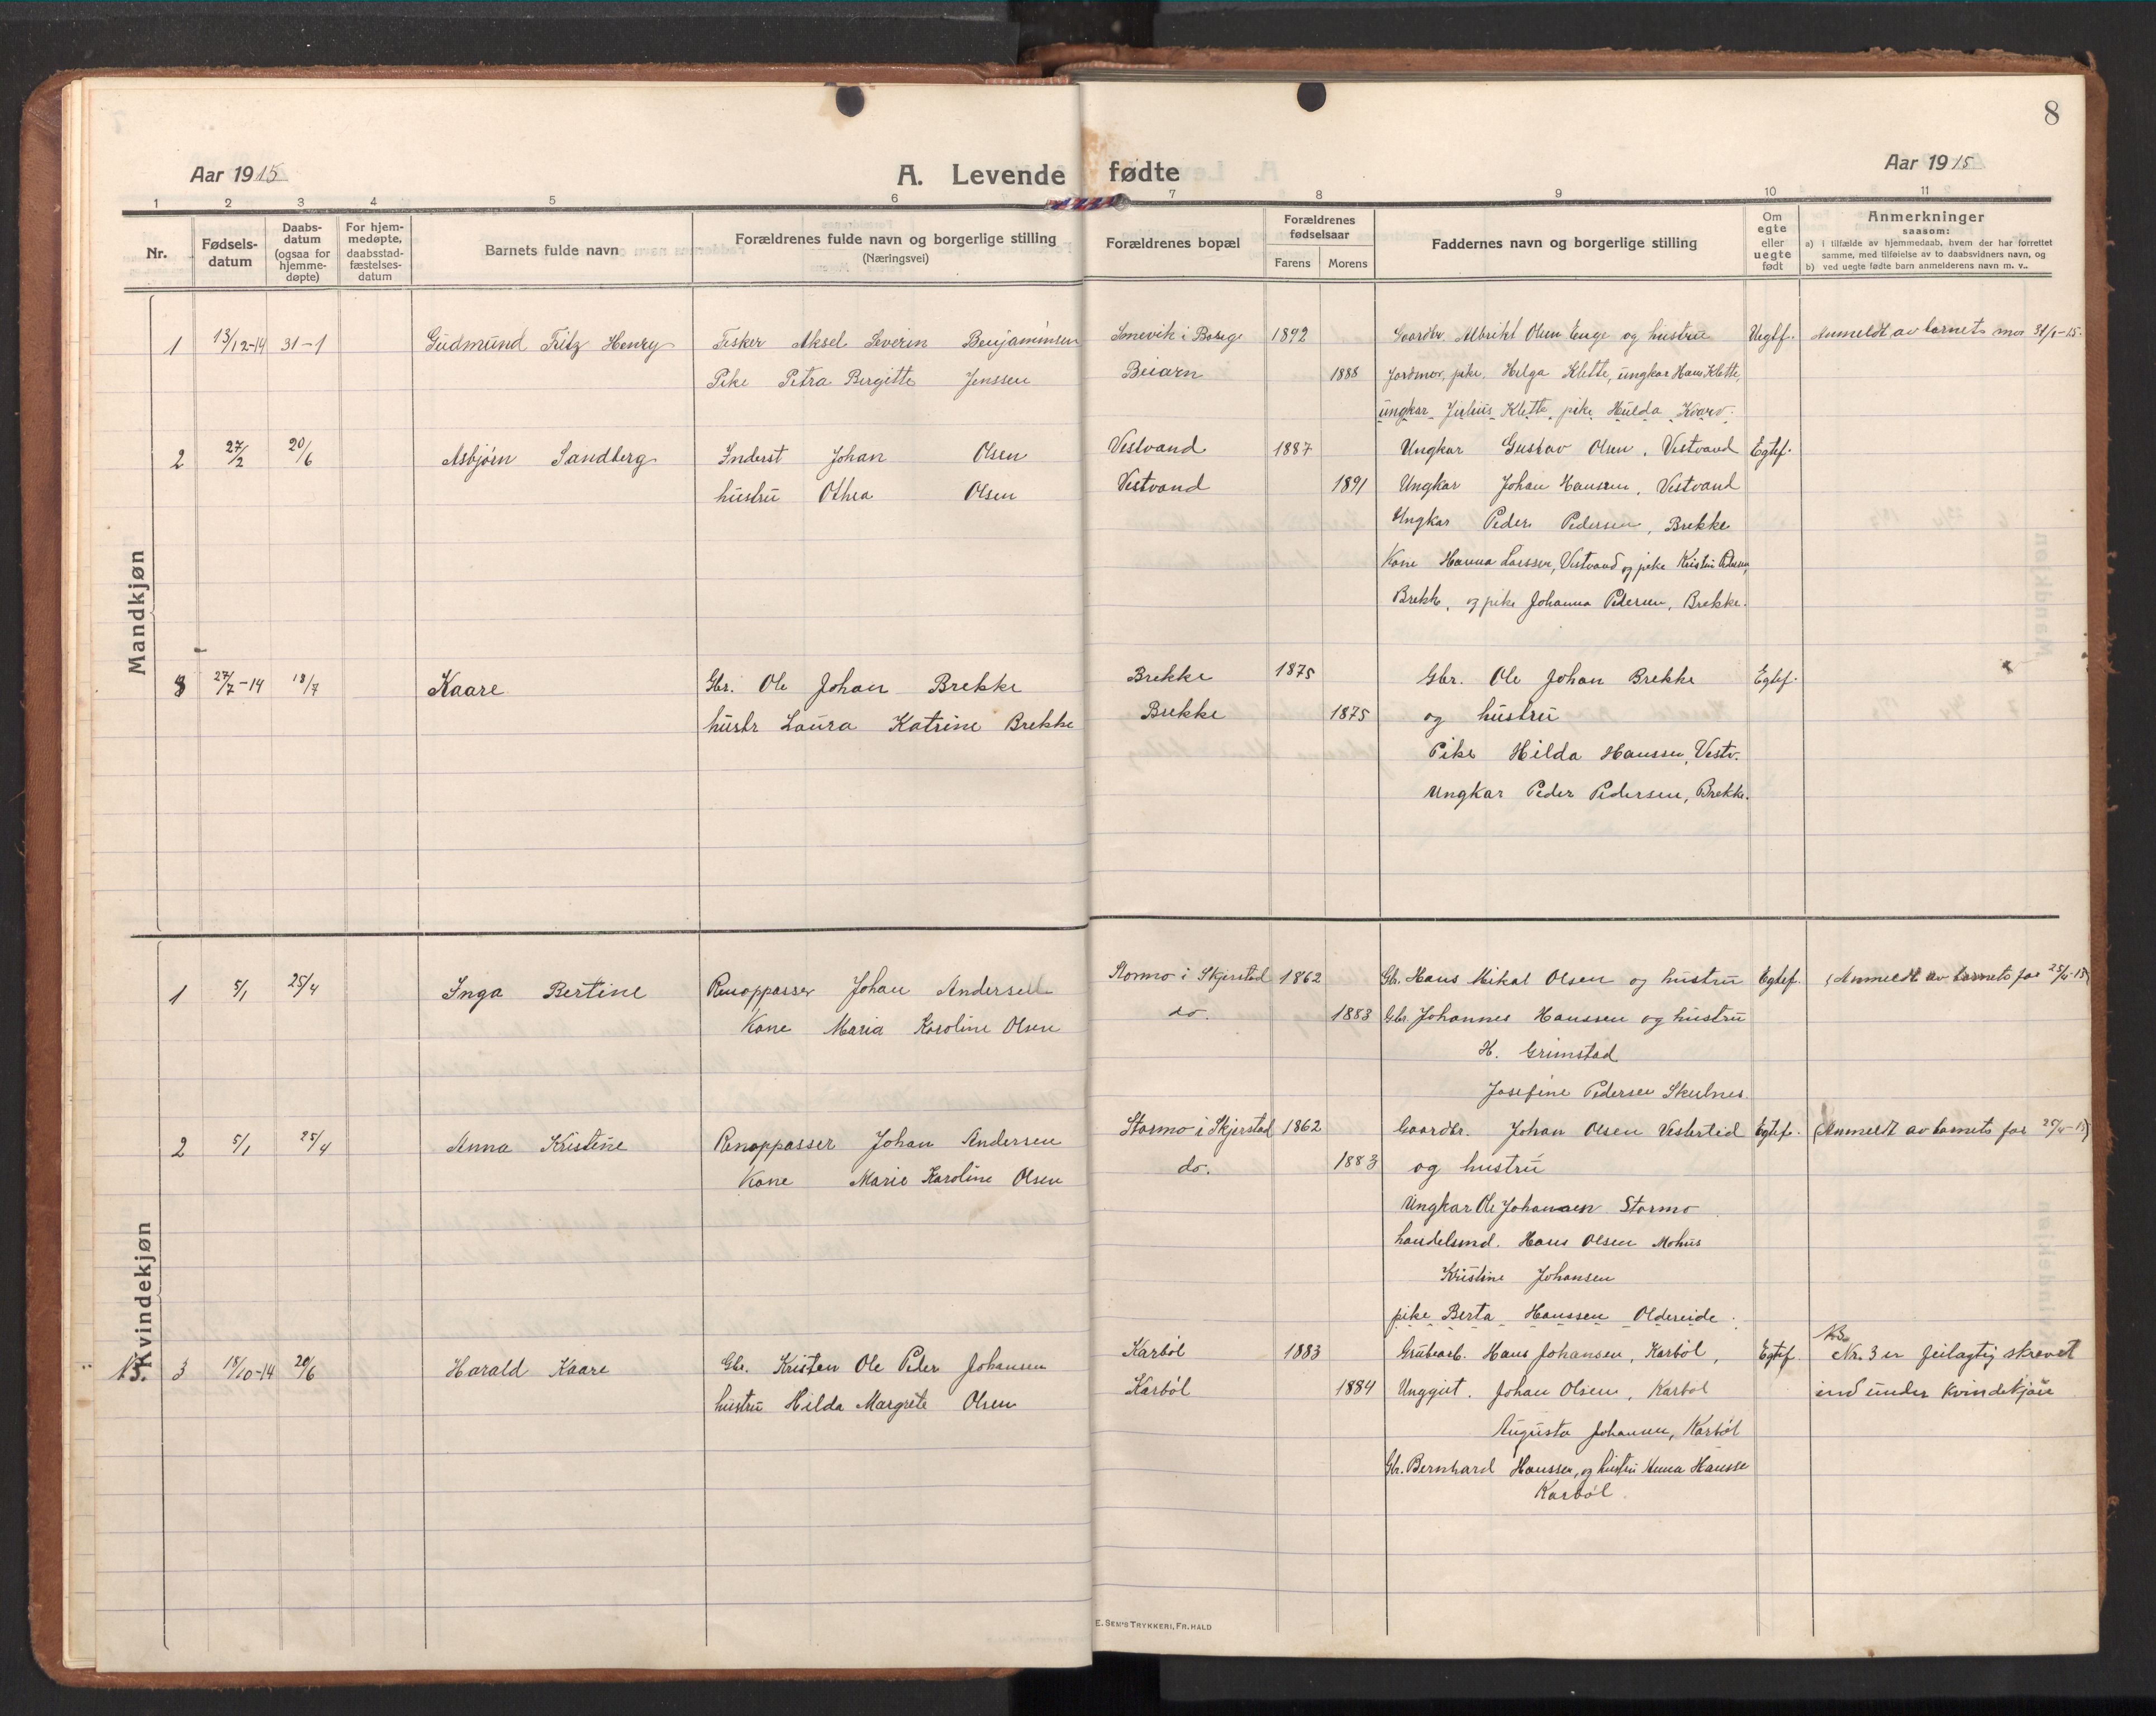 8
Aar 1915
A. Levende fødte
Aar 1915
1 2 3 4 5 6 7 8 9 10 11
Nr.
Fødsels-
datum
Daabs-
datum
(ogsaa for
hjemme-
døpte)
For hjem-
medøpte,
daabsstad-
fæstelses-
datum
Barnets fulde navn
Forældrenes fulde navn og borgerlige stilling
(Næringsvei)
Forældrenes bopæl
Forældrenes
fødselsaar
Farens Morens
Faddernes navn og borgerlige stilling
Om
egte
eller
uegte
født
Anmerkninger
saasom:
a) i tilfælde av hjemmedaab, hvem der har forrettet
samme, med tilføielse av to daabsvidners navn, og
b) ved uegte fødte barn anmelderens navn m. v..
Mandkjøn
1 13/12-14 31-1 Gudmund Fritz Henry Fisker Aksel Severin Benjaminsen Snevik i Borge 1892 Gaardbr. Albrikt Olsen Enge og hustru Uegtf. Anmeldt av barnets mor 31/1-15.
Pike Petra Bergitte Jenssen Beiarn 1888 Jordmor, pike Helga Klette, ungkar Hans Klette,
ungkar Julius Klette, pike Hulda Kvarv.
2 27/2 20/6 Asbjørn Sandberg Inderst Johan Olsen Vestvand 1887 Ungkar Gustav Olsen, Vestvand Egtef.
hustru Othea Olsen Vestvand 1891 Ungkar Johan Hansen, Vestvand
Ungkar Peder Pedersen, Brekke
Kone Hanna Larssen, Vestvand og pike Kristin
Brekke, og pike Johanna Pedersen, Brekke.
3 27/7-14 18/7 Kaare Gbr. Ole Johan Brekke Brekke 1875 Gbr. Ole Johan Brekke Egtef.
hustr Laura Katrine Brekke Brekke 1875 og hustru
Pike Hilda Hanssen, Vestv.
Ungkar Peder Pedersen, Brekke.
Kvindekjøn
1 5/1 25/4 Inga Bertine Renoppasser Johan Andersen Stormo i Skjerstad 1862 Gb. Hans Mikal Olsen og hustru Egtef. (Anmeldt av barnets far 25/4-15)
Kone Maria Karoline Olsen do. 1883 Gbr. Johannes Hanssen og hustru
H. Grimstad
Josefine Pedersen Skulnes.
2 5/1 25/4 Anna Kristine Renoppasser Johan Andersen Stormo i Skjerstad 1862 Gaardbr. Johan Olsen Vesterlid Egtef. (Anmeldt av barnets far 25/4-15)
Kone Marie Karoline Olsen do. 1883 og hustru
Ungkar Ole Johansen Stormo
handelsmd. Hans Olsen Mohus
Kristine Johansen
pike Berta Hanssen Oldereide.
NB. 3 18/10-14 20/6 Harald Kaare Gbr. Kristen Ole Peder Johansen Karbøl 1883 Grubearb. Hans Johansen, Karbøl, Egtef. NB. Nr. 3 er feilagtig skrevet
hustru Hilda Margrete Olsen Karbøl 1884 Unggut. Johan Olsen, Karbøl ind under Kvindekjøn
Augusta Johansen, Karbøl
Gbr. Bernhard Hanssen, og hustru Anna Hansse
Karbøl.
E. SEM'S TRYKKERI, FR.HALD